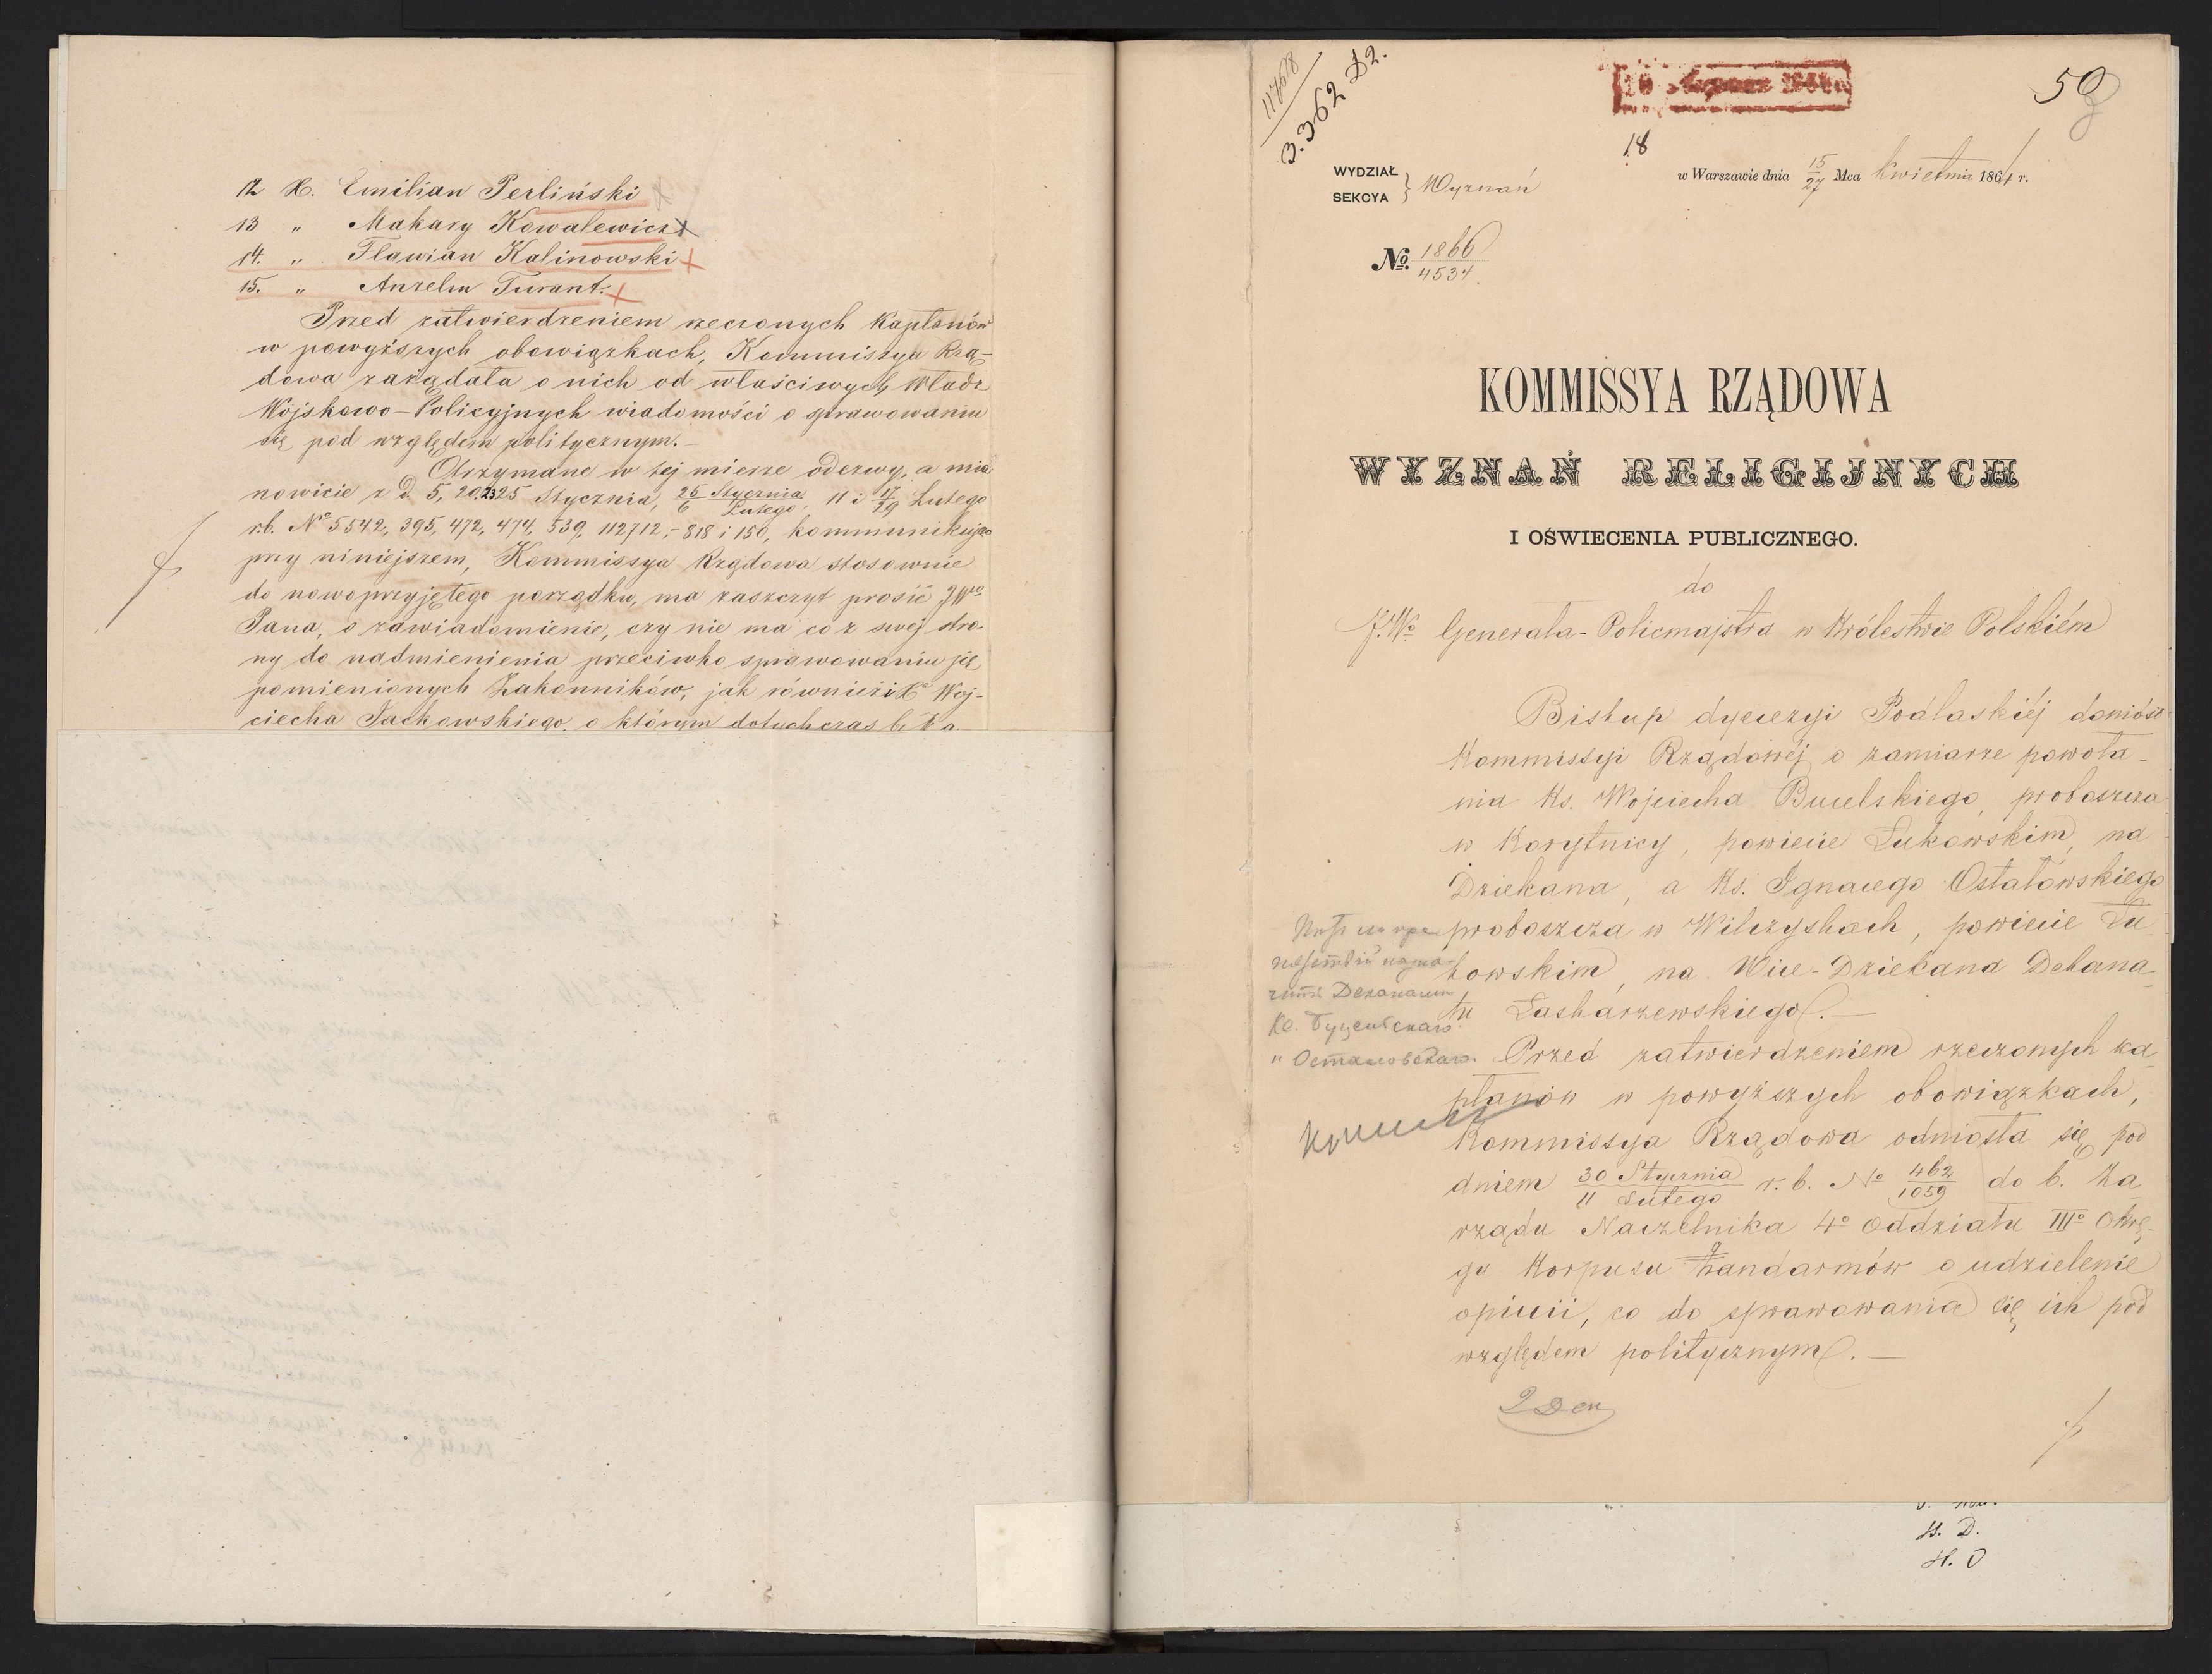 12 X. Emilian Perliński
13 „ Makary Kowalewicz
14. „ Flawian Kalinowski
15. „ Anzelm Turant.
Przed zatwierdzeniem rzeczonych Kapłanów
w powyższych obowiązkach, Kommissya Rzą-
dowa zażądała o nich od właściwych Władz
Wojskowo-Policyjnych wiadomości o sprawowaniu
się pod względem politycznym.-
Otrzymane w tej mierze odezwy, a mia-
nowicie z D. 5, 20, 23, 25 Stycznia, 25 Stycznia/6 Lutego, 11 i 17/29 Lutego
r.b. No 5542, 395, 472, 474, 539, 112712,- 818 i 150, kommunikując
przy niniejszem, Kommissya Rządowa stosownie
do nowoprzyjętego porządku, ma zaszczyt prosić JWgo
Pana, o zawiadomienie, czy nie ma co z swej stro-
ny do nadmienienia przeciwko sprawowaniu się
pomienionych Zakonników, jak również i Xa Woj-
ciecha Jachowskiego, o którym dotychczas
11768
3.362 D2.
50
18
WYDZIAŁ
SEKCYA } Wyznań
w Warszawie dnia 15/27 Mca Kwietnia 1864 r.
No. 1866/4534.
KOMMISSYA RZĄDOWA
WYZNAŃ RELIGIJNYCH
I OŚWIECENIA PUBLICZNEGO.
do
J.Wo Generała-Policmajstra w Królestwie Polskiém
Biskup dyecezyi Podlaskiéj doniósł
Kommissyi Rządowéj o zamiarze powoła-
nia Ks. Wojciecha Bucelskiego, proboszcza
w Korytnicy, powiecie Łukowskim, na
Dziekana, a Ks. Ignacego Ostałowskiego
proboszcza w Wilczyskach, powiecie Łu-
kowskim, na Wice-Dziekana Dekana-
tu Łaskarzewskiego.-
Деканат
Кс. Буцельскаго
" Осталовскаго.
Przed zatwierdzeniem rzeczonych ka-
płanów w powyższych obowiązkach,
Kommissya Rządowa odniosła się pod
dniem 30 Stycznia/11 Lutego r. b. No 462/1059 do b. Za-
rządu Naczelnika 4o Oddziału IIIo Okrę-
gu Korpusu Żandarmów o udzielenie
opinii, co do sprawowania się ich pod
względem politycznym.-
J. D.
J. O